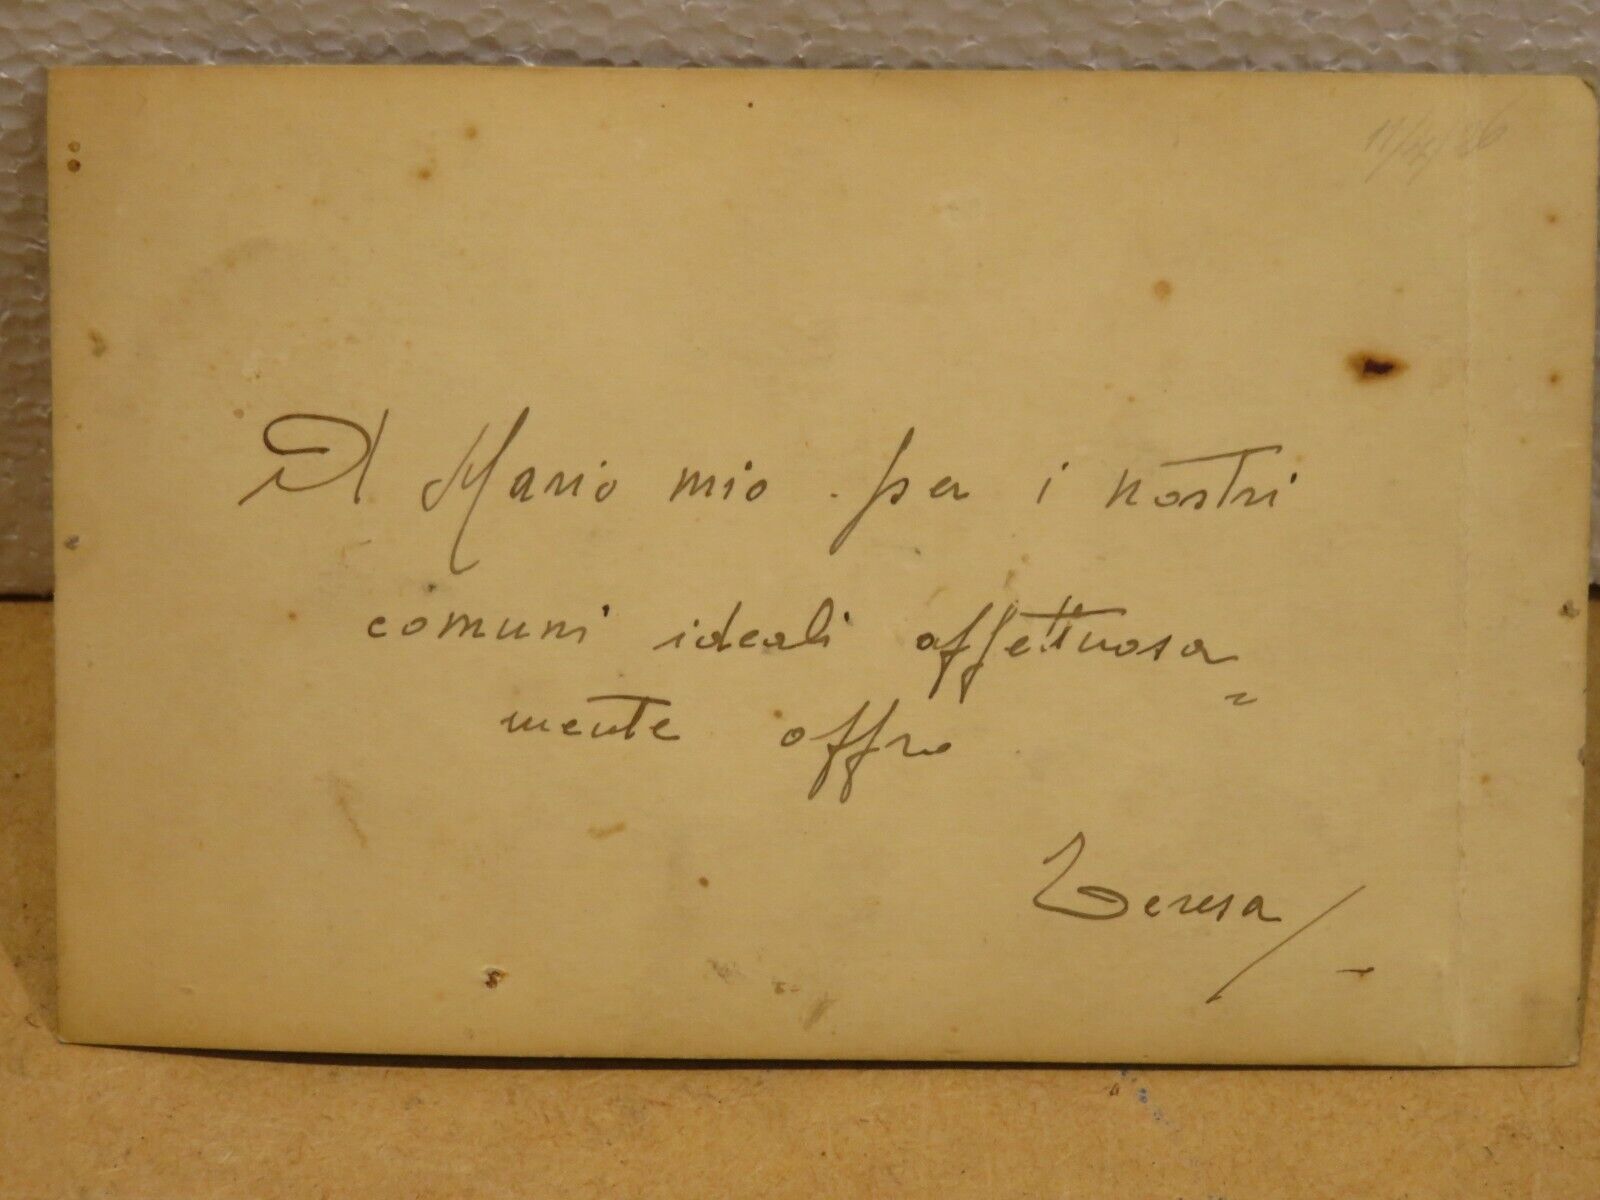 Al Mario mio per i nostri
comuni ideali affettuosa
mente offro
Teresa